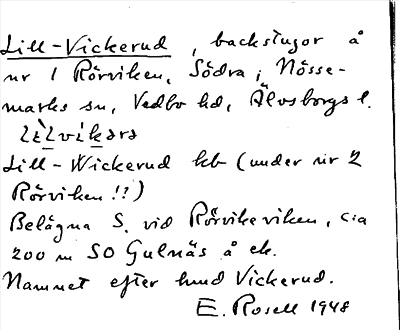 Lill-Vickerud, backstugor å
nr 1 Rörviken, Södra, i Nösse-
marks sn, Vedbo hd, Älvsborgs l.
Lill-Wickerud hb (under nr 2
Rörviken!!)
Belägna S. vid Rörvikeviken, c:a
200 m SO Gulnäs å ek.
Namnet efter hmd Vickerud.
E. Rosell 1948